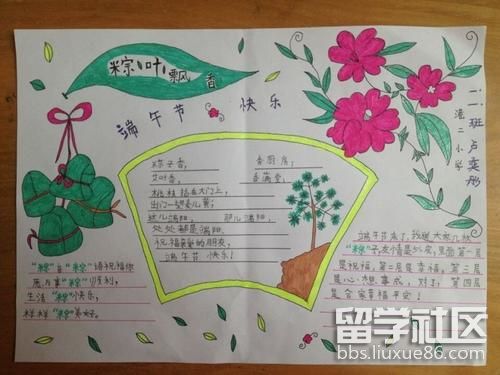 粽叶飘香
端午节 快乐
二、一班 卢奕彤
港二小学
粽子香, 香厨房,
艾叶香, 香满堂,
桃枝插在大门上,
出门一望麦儿黄;
这儿端阳, 那儿端阳,
处处都是端阳,
祝福亲爱的朋友,
端午节 快乐!
“粽”自“粽”语祝福你
万事“粽”顺利,
生活“粽”快乐,
样样“粽”美好。
端午节来了,我祝大家
“粽”子,友情是
是祝福, 第二层是幸福, 第三层
是心想事成, 第四层
是合家幸福平安!
留学社区
bbs.liuxue86.com